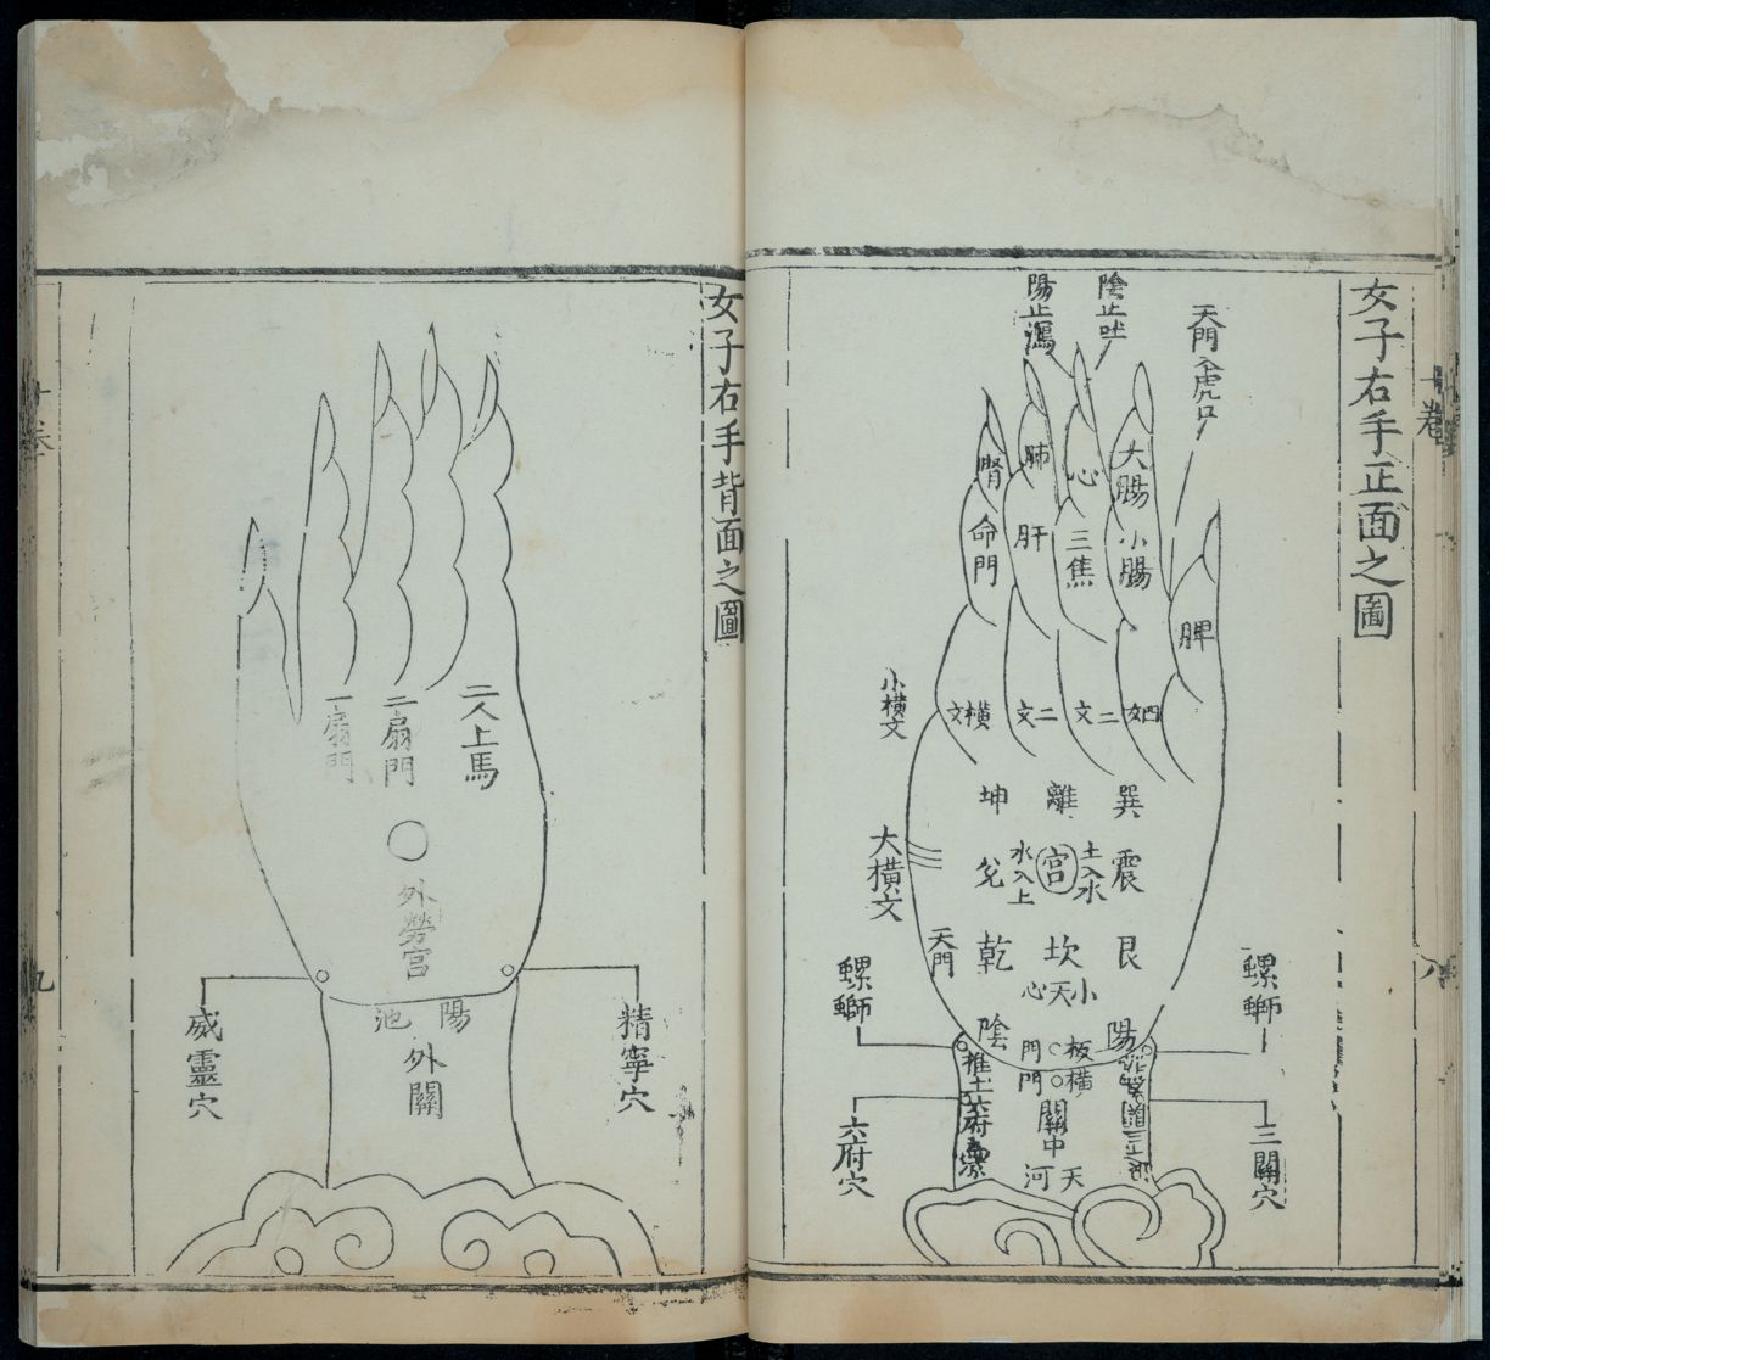 女子右手正面之圖
天門入虎口
陰止吐
陽止瀉
大腸
小腸
心
三焦
肺
肝
腎
命門
脾
四文
二文
二文
橫文
小橫文
巽
離
坤
震
土入水
宮
水入上
兌
大橫文
艮
坎
乾
天門
小天心
陽
陰
板門
橫門
關中
天河
推上
螺螄
三關穴
螺螄
六府穴
十卷
八
女子右手背面之圖
二人上馬
二扇門
一扇門
外勞宮
陽池
外關
精寧穴
威靈穴
九